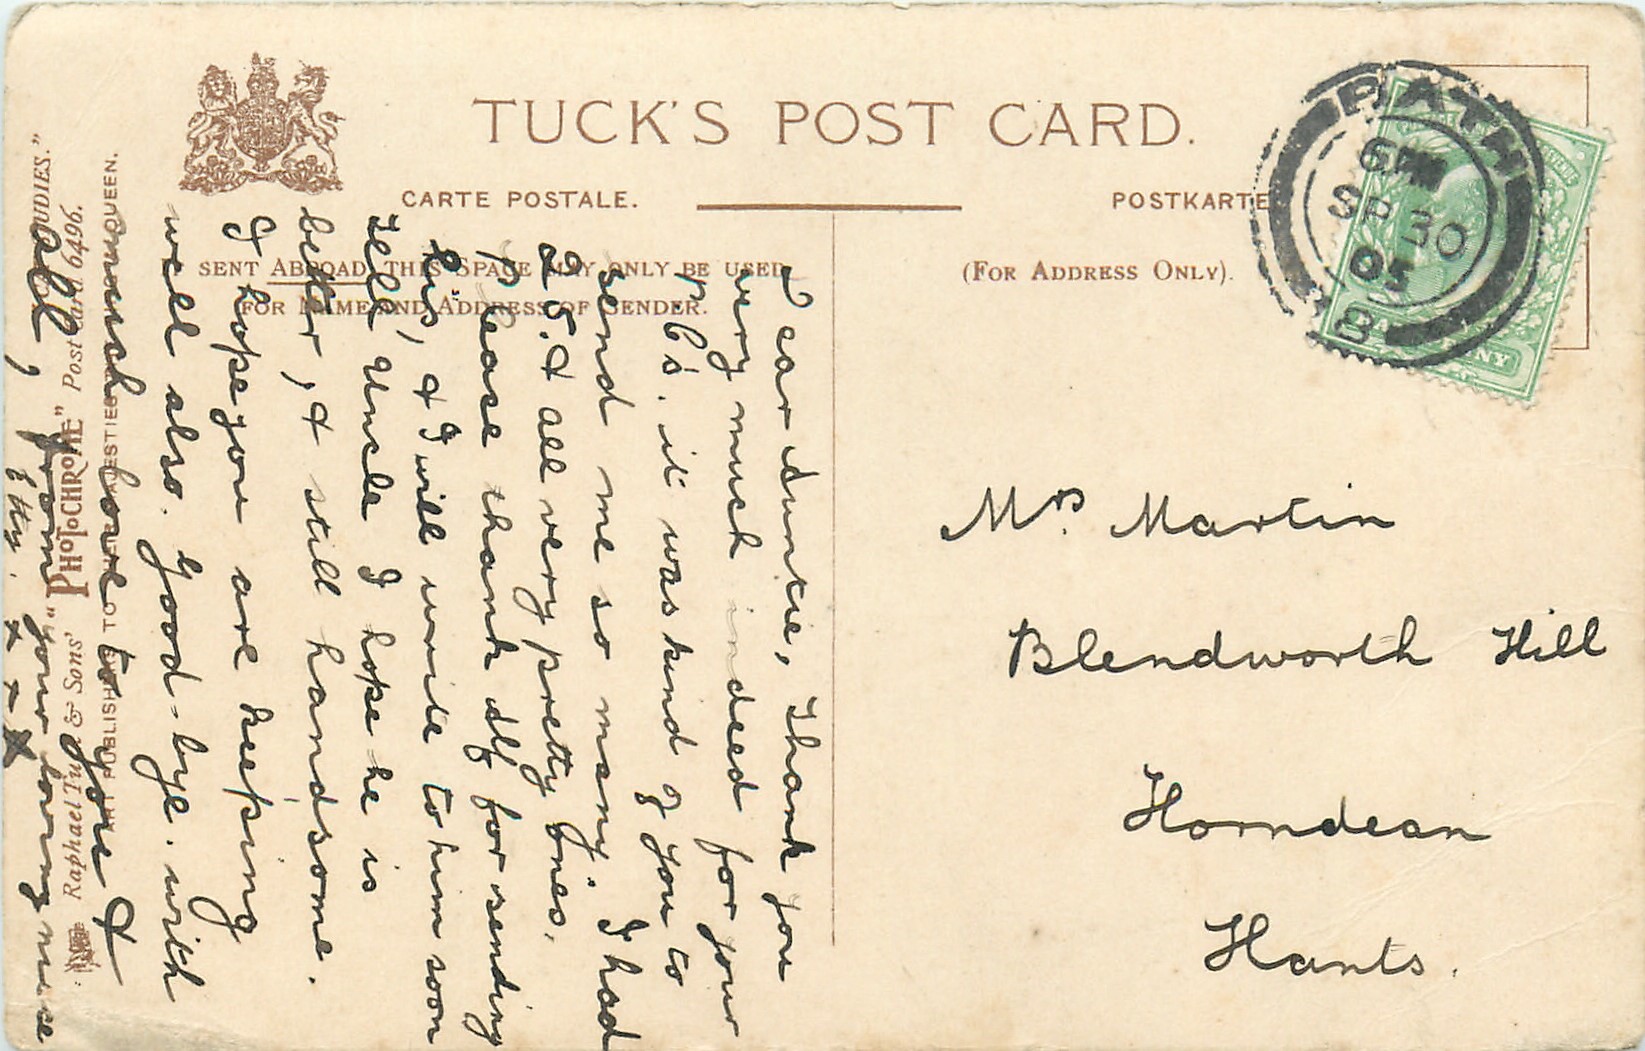 TUCK'S POST CARD.
CARTE POSTALE.
POSTKARTE
SENT ABROAD, THIS SPACE MAY ONLY BE USED
FOR NAME AND ADDRESS OF SENDER.
(FOR ADDRESS ONLY).
BATH
6 PM
SP 30
05
8
Mrs Martin
Blendworth Hill
Horndean
Hants.
Dear Auntie, Thank you
very much indeed for your
P Cs. it was kind of you to
send me so many. I had
25. & all very pretty ones.
Please thank Alf for sending
his, & I will write to him soon
Tell Uncle I hope he is
better, & still handsome.
I hope you are keeping
well also. Good-bye. with
much love to you &
all, from your loving niece
Etty. x x x
Raphael Tuck & Sons' "PHOTOCHROME" Postcard 6496.
ART PUBLISHERS TO THEIR MAJESTIES QUEEN.